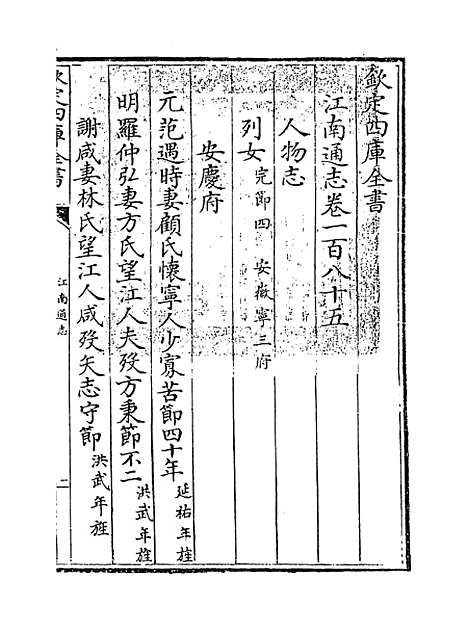 欽定四庫全書
江南通志卷一百八十五
人物志
列女 完節四 安徽寧三府
安慶府
元范遇時妻顧氏懷寧人少寡苦節四十年 延祐年旌
明羅仲弘妻方氏望江人夫歿方秉節不二 洪武年旌
謝咸妻林氏望江人咸歿矢志守節 洪武年旌
欽定四庫全書
江南通志